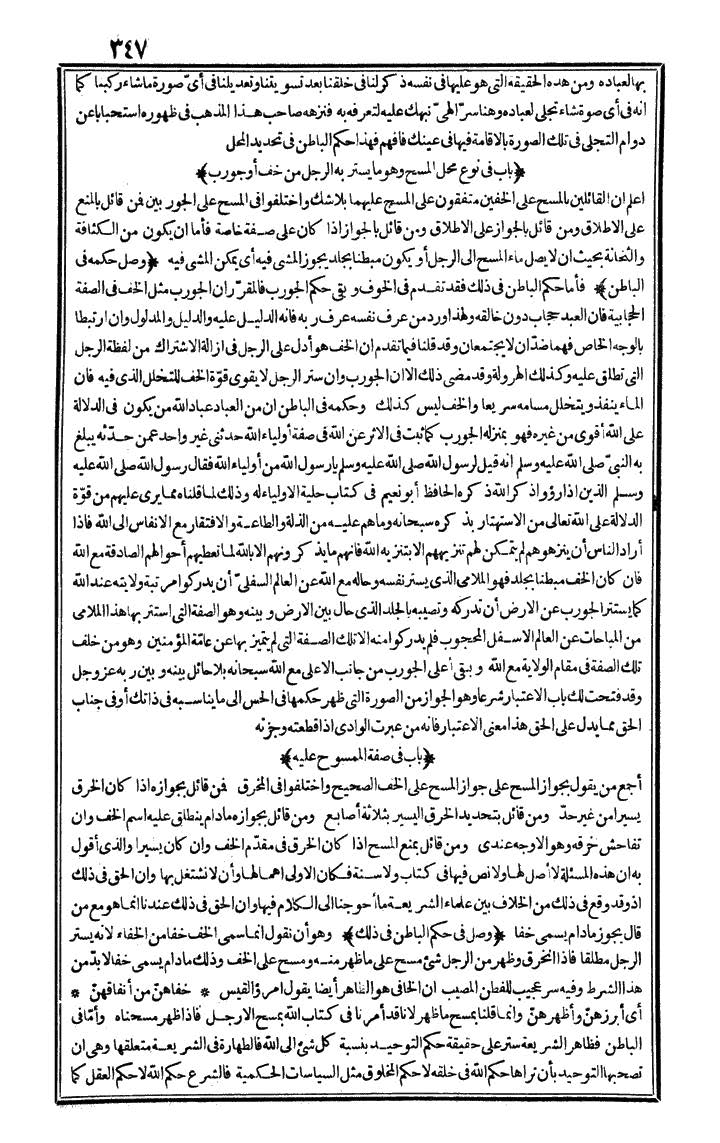 ٣٤٧
بها لعباده ومن هذه الحقيقة التي هو عليها في نفسه ذكر لنا في خلقنا بعد تسويتنا وتعديلنا في أىّ صورة ما شاء ركبنا كما
انه في أى صورة شاء تجلى لعباده وهنا سرّ الهىّ نبهك عليه لتعرفه به فنزهه صاحب هذا المذهب في ظهوره استحبابا عن
دوام التجلى في تلك الصورة بالاقامة فيها في عينك فافهم فهذا حكم الباطن في تحديد المحل
﴿باب في نوع محل المسح وهو ما يستر به الرجل من خف أو جورب﴾
اعلم ان القائلين بالمسح على الخفين متفقون على المسح عليهما بلا شك واختلفوا في المسح على الجوربين فمن قائل بالمنع
على الاطلاق ومن قائل بالجواز على الاطلاق ومن قائل بالجواز اذا كان على صفة خاصة فأما ان يكون من الكثافة
والثخانة بحيث ان لا يصل ماء المسح الى الرجل أو يكون مبطنا بجلد يجوز المشى فيه أى يمكن المشى فيه ﴿وصل حكمه في
الباطن﴾ فأما حكم الباطن في ذلك فقد تقدم في الخوف وبقى حكم الجورب فالمقرّر ان الجورب مثل الخف في الصفة
الحجابية فان العبد حجاب دون خالقه ولهذا ورد من عرف نفسه عرف ربه فانه الدليل عليه والدليل والمدلول وان ارتبطا
بالوجه الخاص فهما ضدّان لا يجتمعان وقد قلنا فيما تقدم ان الخف هو أدل على الرجل في ازالة الاشتراك من لفظة الرجل
التي تطلق عليه وكذلك الهرولة وقد مضى ذلك الا ان الجورب وان ستر الرجل لا يقوى قوّة الخف للتخلل الذي فيه فان
الماء ينفذ ويتخلل مسامه سريعا والخف ليس كذلك وحكمه في الباطن ان من العباد عباد الله من يكون في الدلالة
على الله أقوى من غيره فهو بمنزلة الجورب كما ثبت في الاثر عن الله في صفة أولياء الله حدثني غير واحد عمن حدّثه يبلغ
به النبىّ صلى الله عليه وسلم انه قيل لرسول الله صلى الله عليه وسلم يا رسول الله من أولياء الله فقال رسول الله صلى الله عليه
وسلم الذين اذا رؤوا ذكر الله ذكره الحافظ أبو نعيم في كتاب حلية الاولياء له وذلك لما قلناه مما يرى عليهم من قوّة
الدلالة على الله تعالى من الاستهتار بذكره سبحانه وما هم عليه من الذلة والطاعة والافتقار مع الانفاس الى الله فاذا
أراد الناس أن ينزهوهم لم يتمكن لهم تنزيههم الا بتنزيه الله فانهم ما يذكرونهم الا بالله لما تعطيهم أحوالهم الصادقة مع الله
فان كان الخف مبطنا بجلد فهو الملامى الذي يستر نفسه وحاله مع الله عن العالم السفلىّ أن يدركوا مرتبة ولايته عند الله
كما يستتر الجورب عن الارض أن تدركه وتصيبه بالجلد الذي حال بين الارض وبينه وهو الصفة التي استتر بها هذا الملامى
من المباحات عن العالم الاسفل المحجوب فلم يدركوا منه الا تلك الصفة التي لم يتميز بها عن عامّة المؤمنين وهو من خلف
تلك الصفة في مقام الولاية مع الله وبقى أعلى الجورب من جانب الاعلى مع الله سبحانه بلا حائل بينه وبين ربه عز وجل
وقد فتحت لك باب الاعتبار شرعا وهو الجواز من الصورة التي ظهر حكمها في الحس الى ما يناسبه في ذاتك أو في جناب
الحق مما يدل على الحق هذا معنى الاعتبار فانه من عبرت الوادى اذا قطعته وجزته
﴿باب في صفة الممسوح عليه﴾
أجمع من يقول بجواز المسح على جواز المسح على الخف الصحيح واختلفوا في المخرق فمن قائل بجوازه اذا كان الخرق
يسيرا من غير حدّ ومن قائل بتحديد الخرق اليسير بثلاثة أصابع ومن قائل بجوازه مادام ينطلق عليه اسم الخف وان
تفاحش خرقه وهو الاوجه عندى ومن قائل بمنع المسح اذا كان الخرق في مقدّم الخف وان كان يسيرا والذي أقول
به ان هذه المسئلة لا أصل لها ولا نص فيها في كتاب ولا سنة فكان الاولى اهمالها وأن لا نشتغل بها وان الحق في ذلك
اذ وقد وقع في ذلك من الخلاف بين علماء الشريعة ما أحوجنا الى الكلام فيها وان الحق في ذلك عندنا انما هو مع من
قال يجوز مادام يسمى خفا ﴿وصل في حكم الباطن في ذلك﴾ وهو أن نقول انما سمى الخف خفا من الخفاء لانه يستر
الرجل مطلقا فاذا انخرق وظهر من الرجل شئ مسح على ما ظهر منه ومسح على الخف وذلك مادام يسمى خفا لا بدّ من
هذا الشرط وفيه سر عجيب للفطن المصيب ان الخافى هو الظاهر أيضا يقول امرؤ القيس * خفاهنّ من أنفاقهنّ *
أى أبرزهنّ وأظهرهنّ وانما قلنا بمسح ما ظهر لانا قد أمرنا في كتاب الله بمسح الارجل فاذا ظهر مسحناه وأمّا في
الباطن فظاهر الشريعة ستر على حقيقة حكم التوحيد بنسبة كل شئ الى الله فالطهارة في الشريعة متعلقها وهى ان
تصحبها التوحيد بأن تراها حكم الله في خلقه لا حكم المخلوق مثل السياسات الحكمية فالشرع حكم الله لا حكم العقل كما